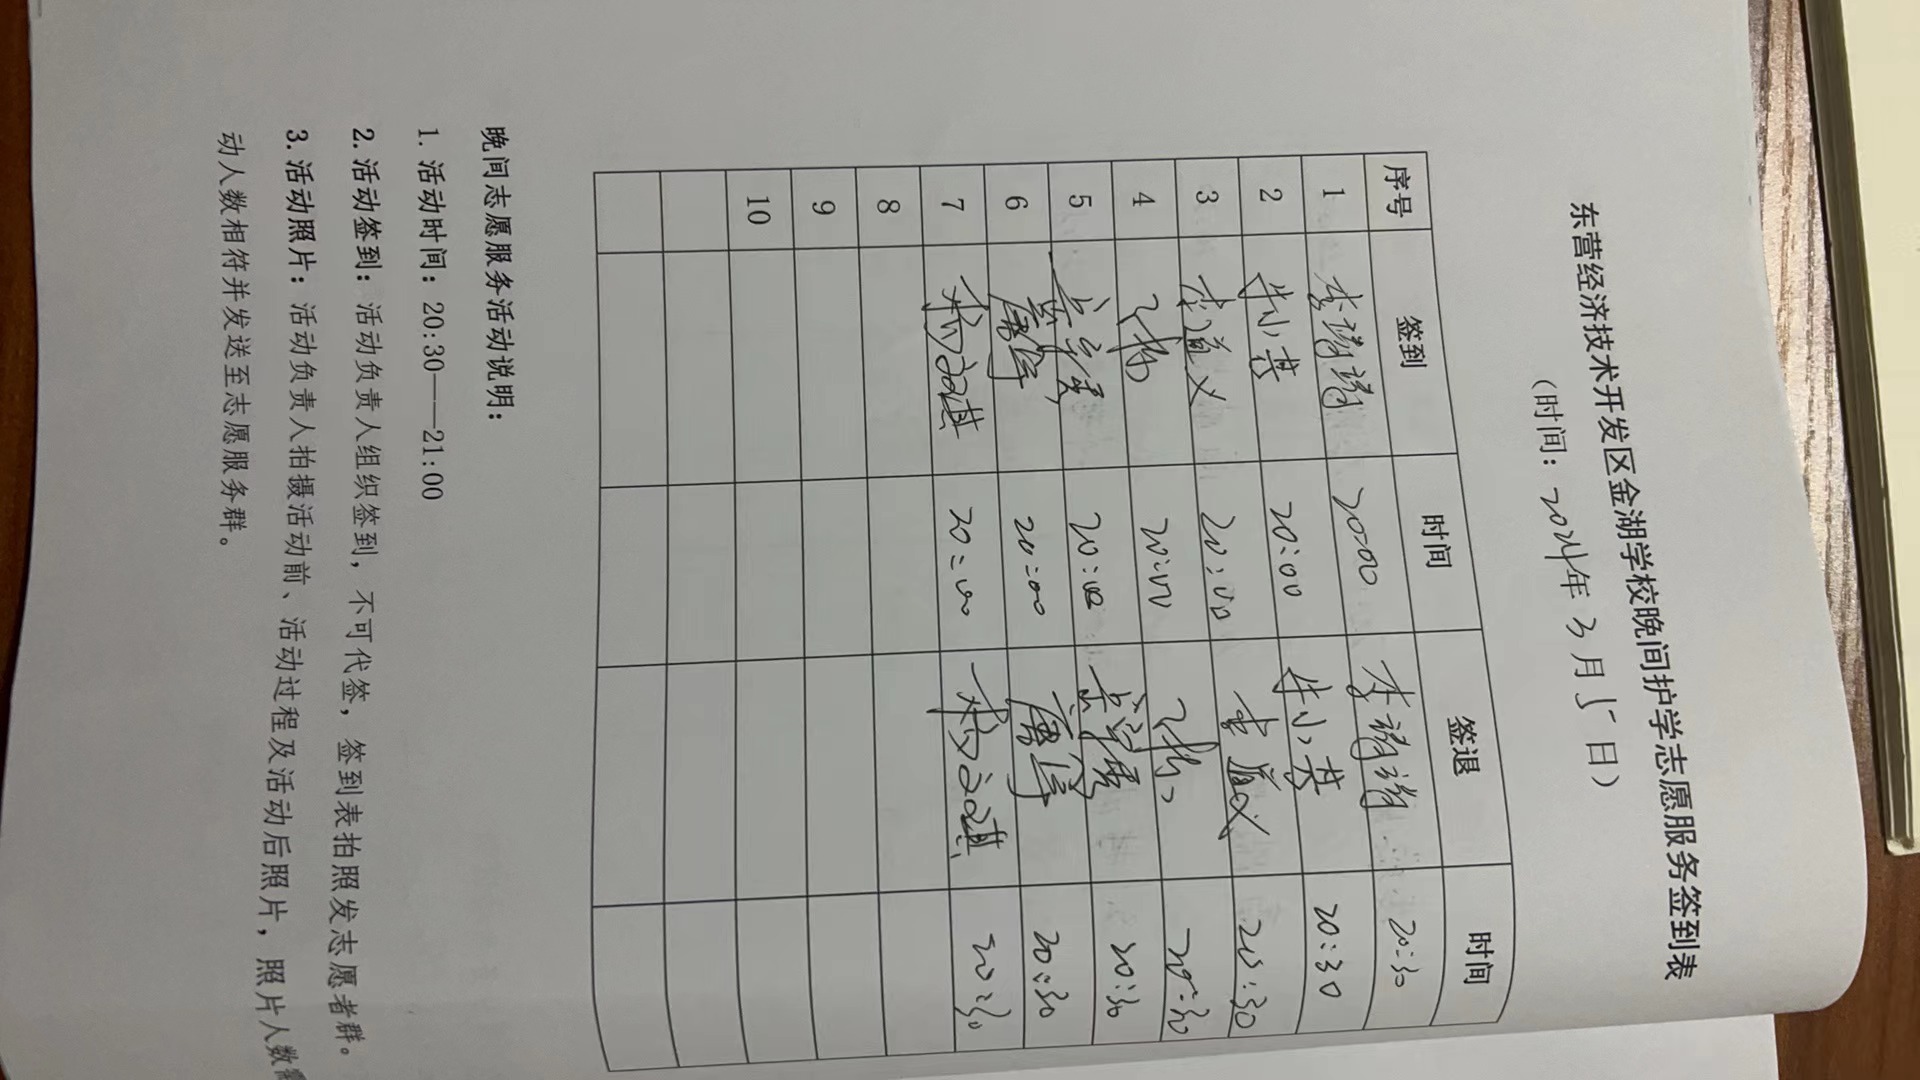 东营经济技术开发区金湖学校晚间护学志愿服务签到表
(时间: 2024年 3 月 5 日)
序号 签到 时间 签退 时间
1 20:00 20:30
2 朱小英 20:00 朱小英 20:30
3 李道义 20:00 李道义 20:30
4 20:00 20:30
5 20:00 20:30
6 20:00 20:30
7 20:00 20:30
8
9
10
晚间志愿服务活动说明:
1. 活动时间: 20:30——21:00
2. 活动签到: 活动负责人组织签到, 不可代签, 签到表拍照发志愿者群。
3. 活动照片: 活动负责人拍摄活动前、活动过程及活动后照片, 照片人数
动人数相符并发送至志愿服务群。